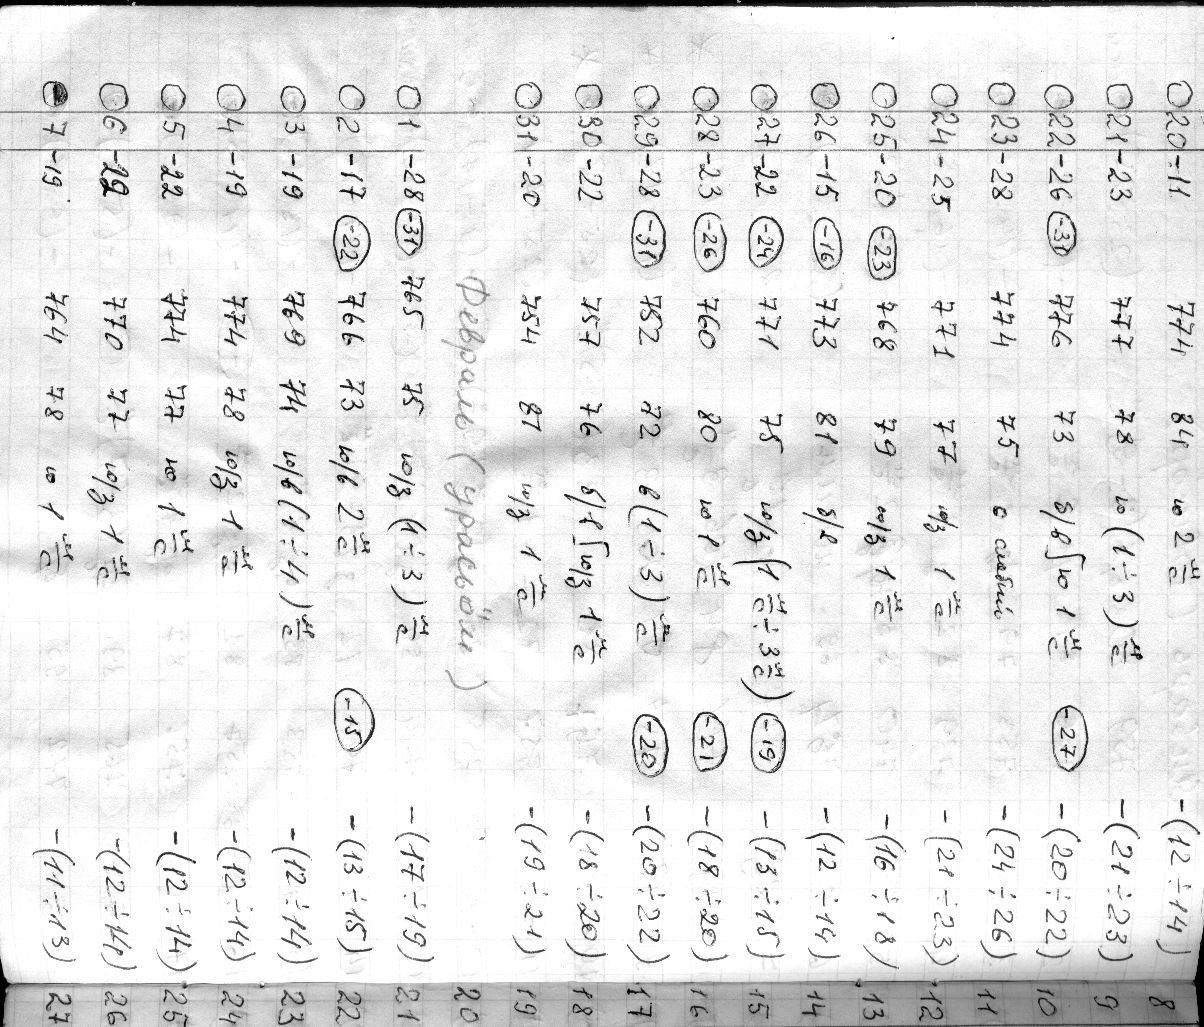 20 -11 774 84 ю 2 м/с -(12÷14) 8
21 -23 777 78 ю (1÷3) м/с -(21÷23) 9
22 -26 -31 776 73 б/в ю 1 м/с -27 -(20÷22) 10
23 -28 774 75 с слабый -(24÷26) 11
24 -25 771 77 ю/з 1 м/с -(21÷23) 12
25 -20 -23 768 79 ю/з 1 м/с -(16÷18) 13
26 -15 -16 773 81 б/в -(12÷14) 14
27 -22 -24 771 75 ю/з (1 м/с ÷ 3 м/с) -19 -(13÷15) 15
28 -23 -26 760 80 ю 1 м/с -21 -(18÷20) 16
29 -28 -31 752 72 в (1÷3) м/с -20 -(20÷22) 17
30 -22 757 76 б/в ю/з 1 м/с -(18÷20) 18
31 -20 754 81 ю/з 1 м/с -(19÷21) 19
Февраль ( ) 20
1 -28 -31 765 75 ю/з (1÷3) м/с -(17÷19) 21
2 -17 -22 766 73 ю/в 2 м/с -15 -(13÷15) 22
3 -19 769 74 ю/в (1÷4) м/с -(12÷14) 23
4 -19 774 78 ю/з 1 м/с -(12÷14) 24
5 -22 774 77 ю 1 м/с -(12÷14) 25
6 -22 770 77 ю/з 1 м/с -(12÷14) 26
7 -19 764 78 ю 1 м/с -(11÷13) 27